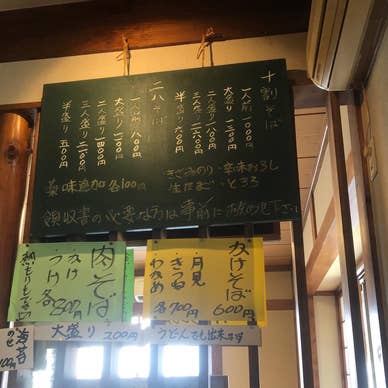 十割そば
一人前 1000円
大盛り 1300円
二人盛り 1600円
三人盛り 1800円
半盛り 600円
二八そば
一人前 800円
大盛り 1000円
二人盛り 1400円
三人盛り
半盛り 500円
きざみのり・辛味おろし
生たまご・とろろ
薬味追加 各100円
領収書の必要な方は事前に
かけそば 600円
・月見
・きつね
・わかめ
各700円
肉そば
・かけ
・つけ
各800円
大盛り 200円
うどんでも出来ます
海苔
100円